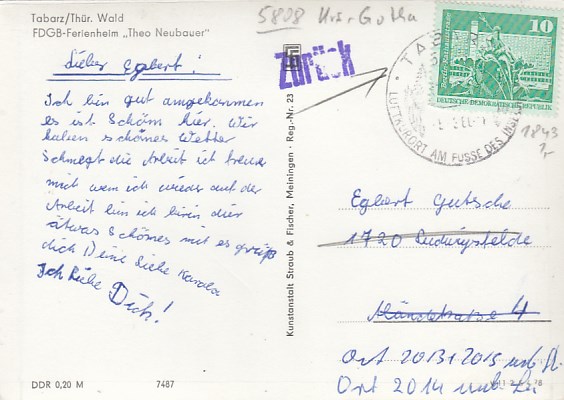 Tabarz/Thür. Wald
FDGB-Ferienheim „Theo Neubauer"
5808 Krs. Gotha
Zurück
10
DEUTSCHE DEMOKRATISCHE REPUBLIK
TABARZ
LUFTKURORT AM FUSSE DES
1843
Lieber Egbert!
Ich bin gut angekommen
es ist Schön hier. Wir
haben schönes Wetter
Schmegt die Arbeit ich freue
mich wen ich wieder auf der
Arbeit bin ich birin dier
ätwas Schönes mit es grüß
dich Deine Liebe Karola
Ich Liebe Dich!
Kunstanstalt Straub & Fischer, Meiningen · Reg.-Nr. 23
Egbert Gutsche
1720 Ludwigsfelde
4
Ort 2013+2015 unb fl.
Ort 2014 unb
DDR 0,20 M
7487